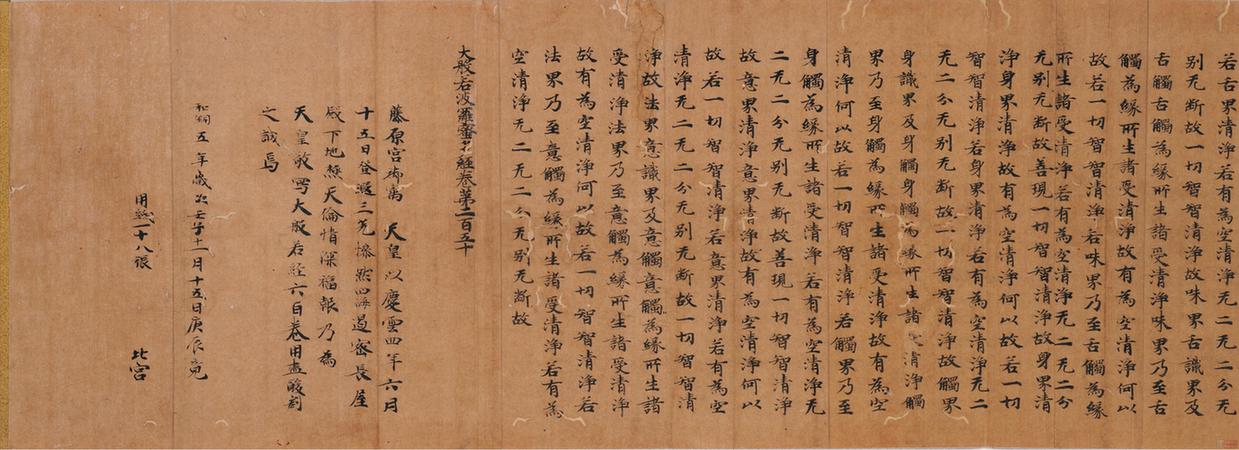 若舌界清淨若有為空清淨无二无二分无
別无斷故一切智智清淨故味界舌識界及
舌觸舌觸為緣所生諸受清淨味界乃至舌
觸為緣所生諸受清淨故有為空清淨何以
故若一切智智清淨若味界乃至舌觸為緣
所生諸受清淨若有為空清淨无二无二分
无別无斷故善現一切智智清淨故身界清
淨身界清淨故有為空清淨何以故若一切
智智清淨若身界清淨若有為空清淨无二
无二分无別无斷故一切智智清淨故觸界
身識界及身觸身觸為緣所生諸受清淨觸
界乃至身觸為緣所生諸受清淨故有為空
清淨何以故若一切智智清淨若觸界乃至
身觸為緣所生諸受清淨若有為空清淨无
二无二分无別无斷故善現一切智智清淨
故意界清淨意界清淨故有為空清淨何以
故若一切智智清淨若意界清淨若有為空
清淨无二无二分无別无斷故一切智智清
淨故法界意識界及意觸意觸為緣所生諸
受清淨法界乃至意觸為緣所生諸受清淨
故有為空清淨何以故若一切智智清淨若
法界乃至意觸為緣所生諸受清淨若有為
空清淨无二无二分无別无斷故
大般若波羅蜜多經卷第二百五十
藤原宮御寓 天皇以慶雲四年六月
十五日登遐三光慘然四海遏密長屋
殿下地極天倫情深福報乃為
天皇敬寫大般若經六百卷用盡酸割
之誠焉
和銅五年歲次壬子十一月十五日庚辰竟
用紙一十八張
北宮